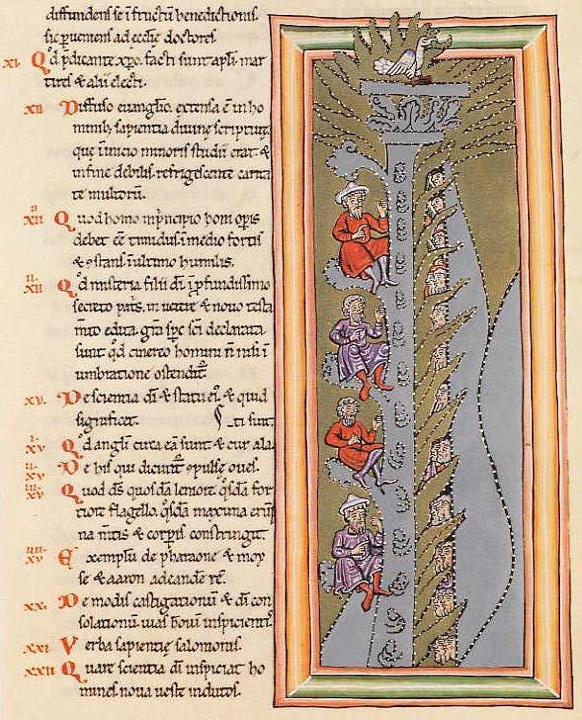 diffundens se ī fructū benedictionis.
sic pueniens ad ecclie doctores
xi. Qd pdicante xpo. facti sunt apli mar
tires & alii electi.
xii Diffuso euanglio. extensa ē in ho
minib; sapientia diuine scripture.
que ī inicio minoris studii erat &
in fine debilis. refrigescente carita
te multorū.
xiii Quod homo in principio boni opis
debet eē timidus. in medio fortis
& ostans. in ultimo humilis.
xiiii Qd misteria filii dī ī pfundissimo
secreto patris. in uetere & nouo testa
mto edita. gra sps sci declarata
sunt. qd cinereo homini n nisi ī
umbratione ostendit.
xv. De scientia dī & statu ei. & quid
significet.
ti sunt.
xvi Qd angli circa eā sunt & cur ala
xvii De his qui dicunt expulse oues.
xviii Quod ds quosdā leniore. qsdā for
tiori flagello. qsdā maxima
na mtis & corpis constringit.
xviiii Exemplū de pharaone & moy
se & aaron ad eande rē.
xx. De modis castigationū & dī con
solationū uias homī inspicientis
xxi Verba sapientie salomonis.
xxii Quare scientia dī inspiciat ho
mines noua ueste indutos.